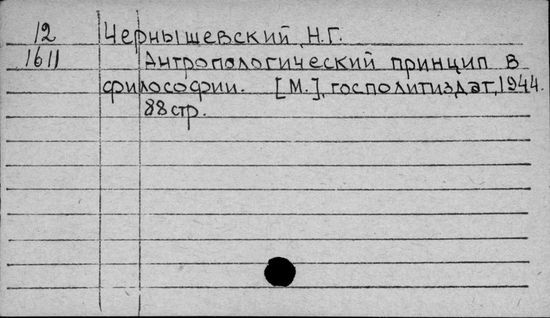 12 Чернышевский, Н.Г.
1611 Антропологический принцип в
философии. [М.], госполитиздат, 1944.
88 стр.